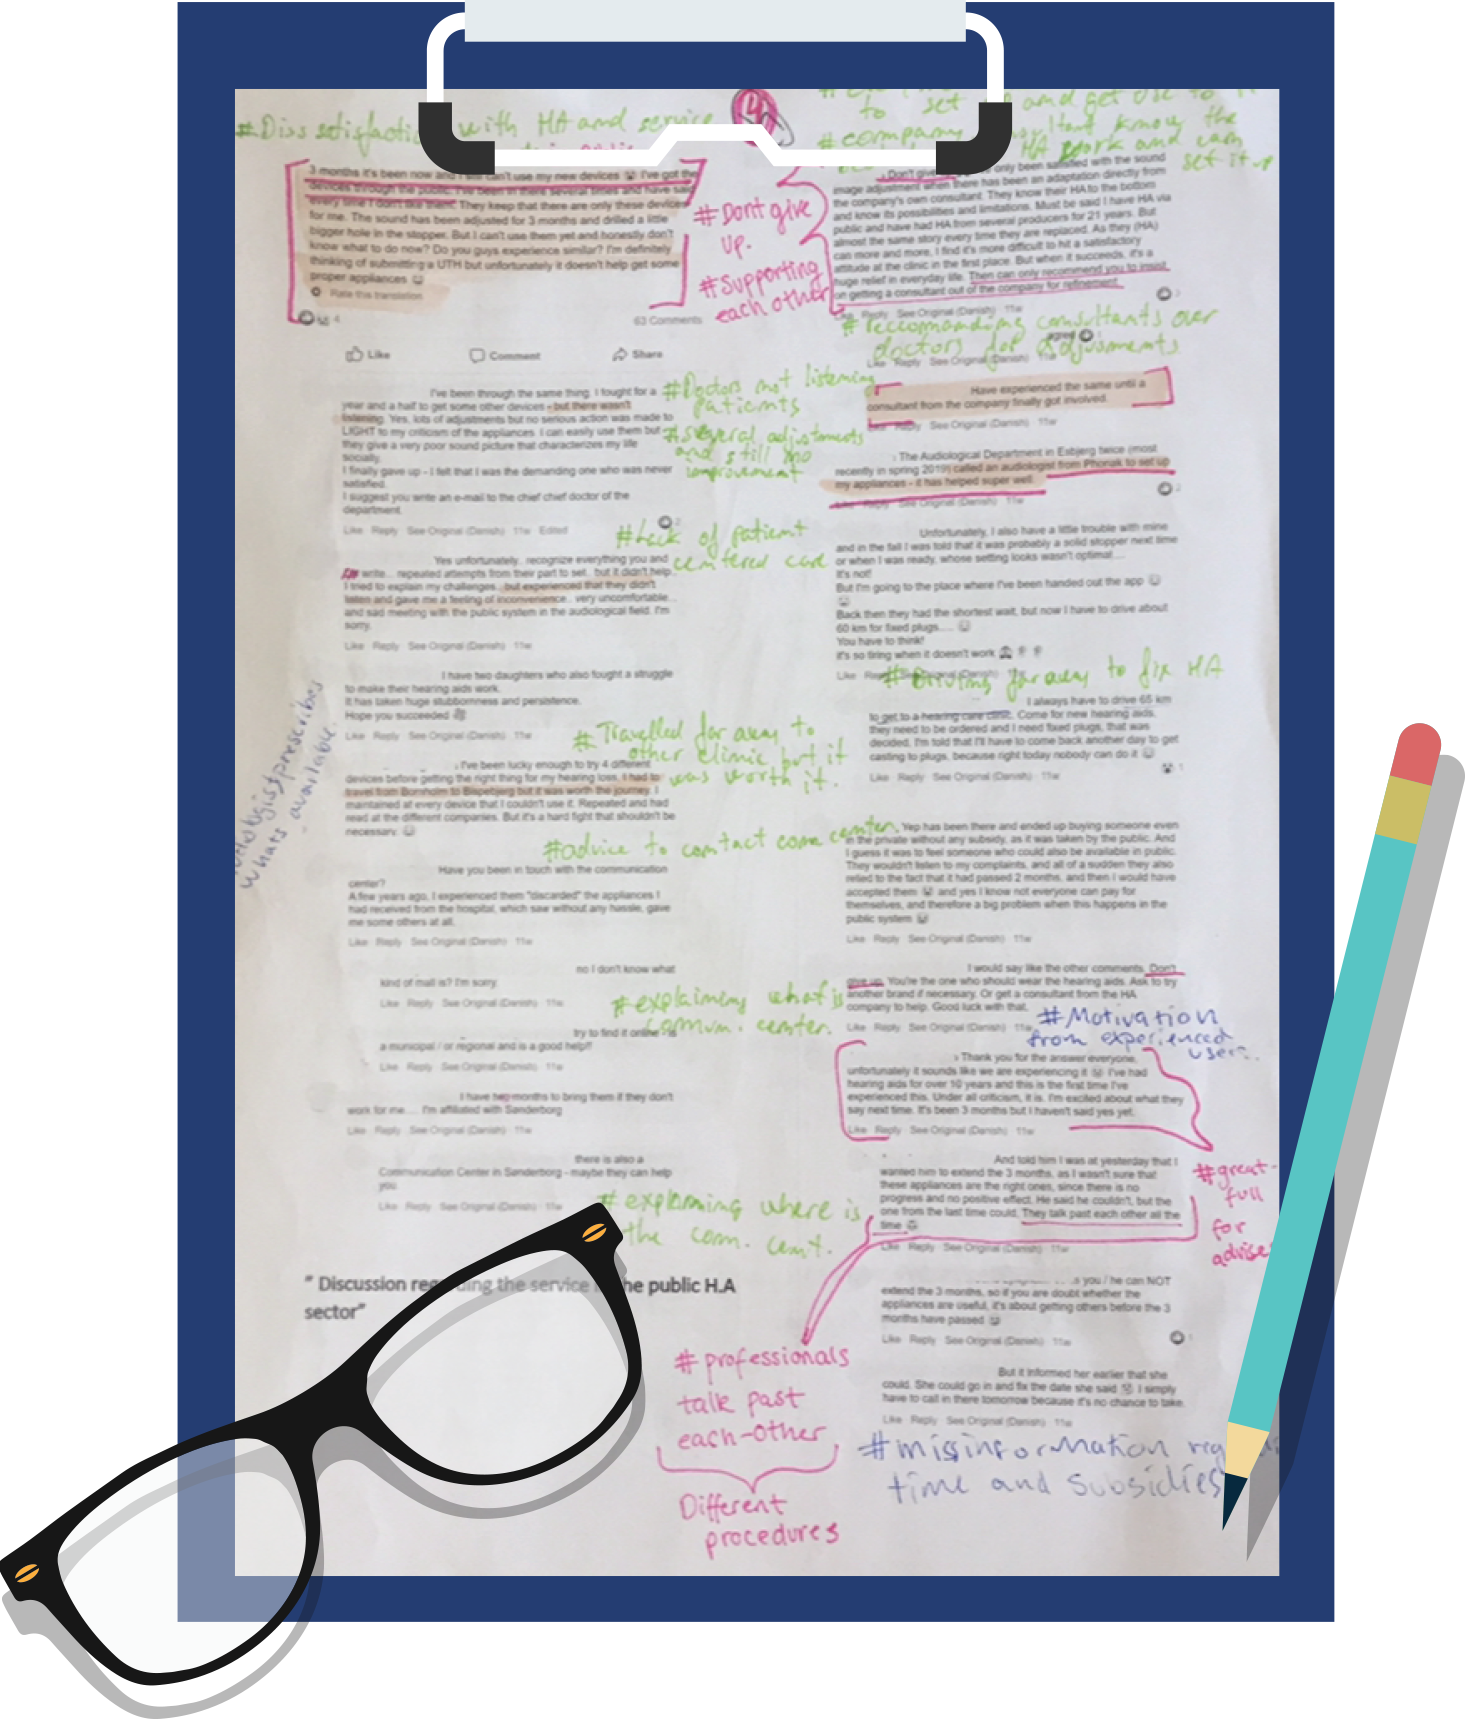 #Diss satisfaction with HA and service
3 months it's been now and I still can't use my new devices I've got the
devices through the public. I've been in there several times and have said
every time I don't like them. They keep that there are only these devices
for me. The sound has been adjusted for 3 months and drilled a little
bigger hole in the stopper. But I can't use them yet and honestly don't
know what to do now? Do you guys experience similar? I'm definitely
thinking of submitting a UTH but unfortunately it doesn't help get some
proper appliances
Rate this translation
4
63 Comments
Like Comment Share
#Dont give
up.
#Supporting
each other
I've been through the same thing. I fought for a
year and a half to get some other devices - but there wasn't
listening. Yes, lots of adjustments but no serious action was made to
LIGHT to my criticism of the appliances. I can easily use them but
they give a very poor sound picture that characterizes my life
socially.
I finally gave up - I felt that I was the demanding one who was never
satisfied.
I suggest you write an e-mail to the chief chief doctor of the
department.
Like Reply See Original (Danish) 11w Edited
2
#Doctors not listening
patients
#several adjustments
and still no
improvement
#Lack of patient
centered care
Yes unfortunately.. recognize everything you and
write... repeated attempts from their part to set.. but it didn't help..
I tried to explain my challenges.. but experienced that they didn't
listen and gave me a feeling of inconvenience.. very uncomfortable...
and sad meeting with the public system in the audiological field. I'm
sorry.
Like Reply See Original (Danish) 11w
I have two daughters who also fought a struggle
to make their hearing aids work.
It has taken huge stubbornness and persistence.
Hope you succeeded
Like Reply See Original (Danish) 11w
# Travelled far away to
other clinic but it
was worth it.
I've been lucky enough to try 4 different
devices before getting the right thing for my hearing loss. I had to
travel from Bornholm to Bispebjerg but it was worth the journey. I
maintained at every device that I couldn't use it. Repeated and had
read at the different companies. But it's a hard fight that shouldn't be
necessary.
prescribes
whats available.
#advice to contact comm center.
Have you been in touch with the communication
center?
A few years ago, I experienced them "discarded" the appliances I
had received from the hospital, which saw without any hassle, gave
me some others at all.
Like Reply See Original (Danish) 11w
no I don't know what
kind of mail is? I'm sorry.
Like Reply See Original (Danish) 11w
#explaining what is
commun. center.
try to find it online - is
a municipal / or regional and is a good help!!
Like Reply See Original (Danish) 11w
I have two months to bring them if they don't
work for me.... I'm affiliated with Sønderborg
Like Reply See Original (Danish) 11w
there is also a
Communication Center in Sønderborg - maybe they can help
you
Like Reply See Original (Danish) 11w
# explaining where is
the com. cent.
" Discussion the service he public H.A
sector"
# professionals
talk past
each-other
Different
procedures
to set and get use to
#company know the
HA work and can
set it up
Don't give only been satisfied with the sound
image adjustment when there has been an adaptation directly from
the company's own consultant. They know their HA to the bottom
and know its possibilities and limitations. Must be said I have HA via
public and have had HA from several producers for 21 years. But
almost the same story every time they are replaced. As they (HA)
can more and more, I find it's more difficult to hit a satisfactory
attitude at the clinic in the first place. But when it succeeds, it's a
huge relief in everyday life. Then can only recommend you to insist
on getting a consultant out of the company for refinement.
Like Reply See Original (Danish) 11w
# reccomanding consultants over
doctors for adjusments
agreed
Like Reply See Original (Danish) 11w
Have experienced the same until a
consultant from the company finally got involved.
Like Reply See Original (Danish) 11w
The Audiological Department in Esbjerg twice (most
recently in spring 2019) called an audiologist from Phonak to set up
my appliances - it has helped super well.
2
Like Reply See Original (Danish) 11w
Unfortunately, I also have a little trouble with mine
and in the fall I was told that it was probably a solid stopper next time
or when I was ready, whose setting looks wasn't optimal....
It's not!
But I'm going to the place where I've been handed out the app
Back then they had the shortest wait, but now I have to drive about
60 km for fixed plugs....
You have to think!
it's so tiring when it doesn't work
Like Reply See Original (Danish) 11w
#Driving far away to fix HA
I always have to drive 65 km
to get to a hearing care clinic. Come for new hearing aids,
they need to be ordered and I need fixed plugs, that was
decided, I'm told that I'll have to come back another day to get
casting to plugs, because right today nobody can do it
Like Reply See Original (Danish) 11w
1
Yep has been there and ended up buying someone even
in the private without any subsidy, as it was taken by the public. And
I guess it was to feel someone who could also be available in public.
They wouldn't listen to my complaints, and all of a sudden they also
relied to the fact that it had passed 2 months, and then I would have
accepted them and yes I know not everyone can pay for
themselves, and therefore a big problem when this happens in the
public system
Like Reply See Original (Danish) 11w
I would say like the other comments. Don't
give up. You're the one who should wear the hearing aids. Ask to try
another brand if necessary. Or get a consultant from the HA
company to help. Good luck with that.
Like Reply See Original (Danish) 11w
#Motivation
from experienced
users.
Thank you for the answer everyone,
unfortunately it sounds like we are experiencing it I've had
hearing aids for over 10 years and this is the first time I've
experienced this. Under all criticism, it is. I'm excited about what they
say next time. It's been 3 months but I haven't said yes yet.
Like Reply See Original (Danish) 11w
And told him I was at yesterday that I
wanted him to extend the 3 months, as I wasn't sure that
these appliances are the right ones, since there is no
progress and no positive effect. He said he couldn't, but the
one from the last time could. They talk past each other all the
time
Like Reply See Original (Danish) 11w
#great-
full
for
advise
you / he can NOT
extend the 3 months, so if you are doubt whether the
appliances are useful, it's about getting others before the 3
months have passed
Like Reply See Original (Danish) 11w
1
But it informed her earlier that she
could. She could go in and fix the date she said I simply
have to call in there tomorrow because it's no chance to take.
Like Reply See Original (Danish) 11w
#missinformation
time and subsidies